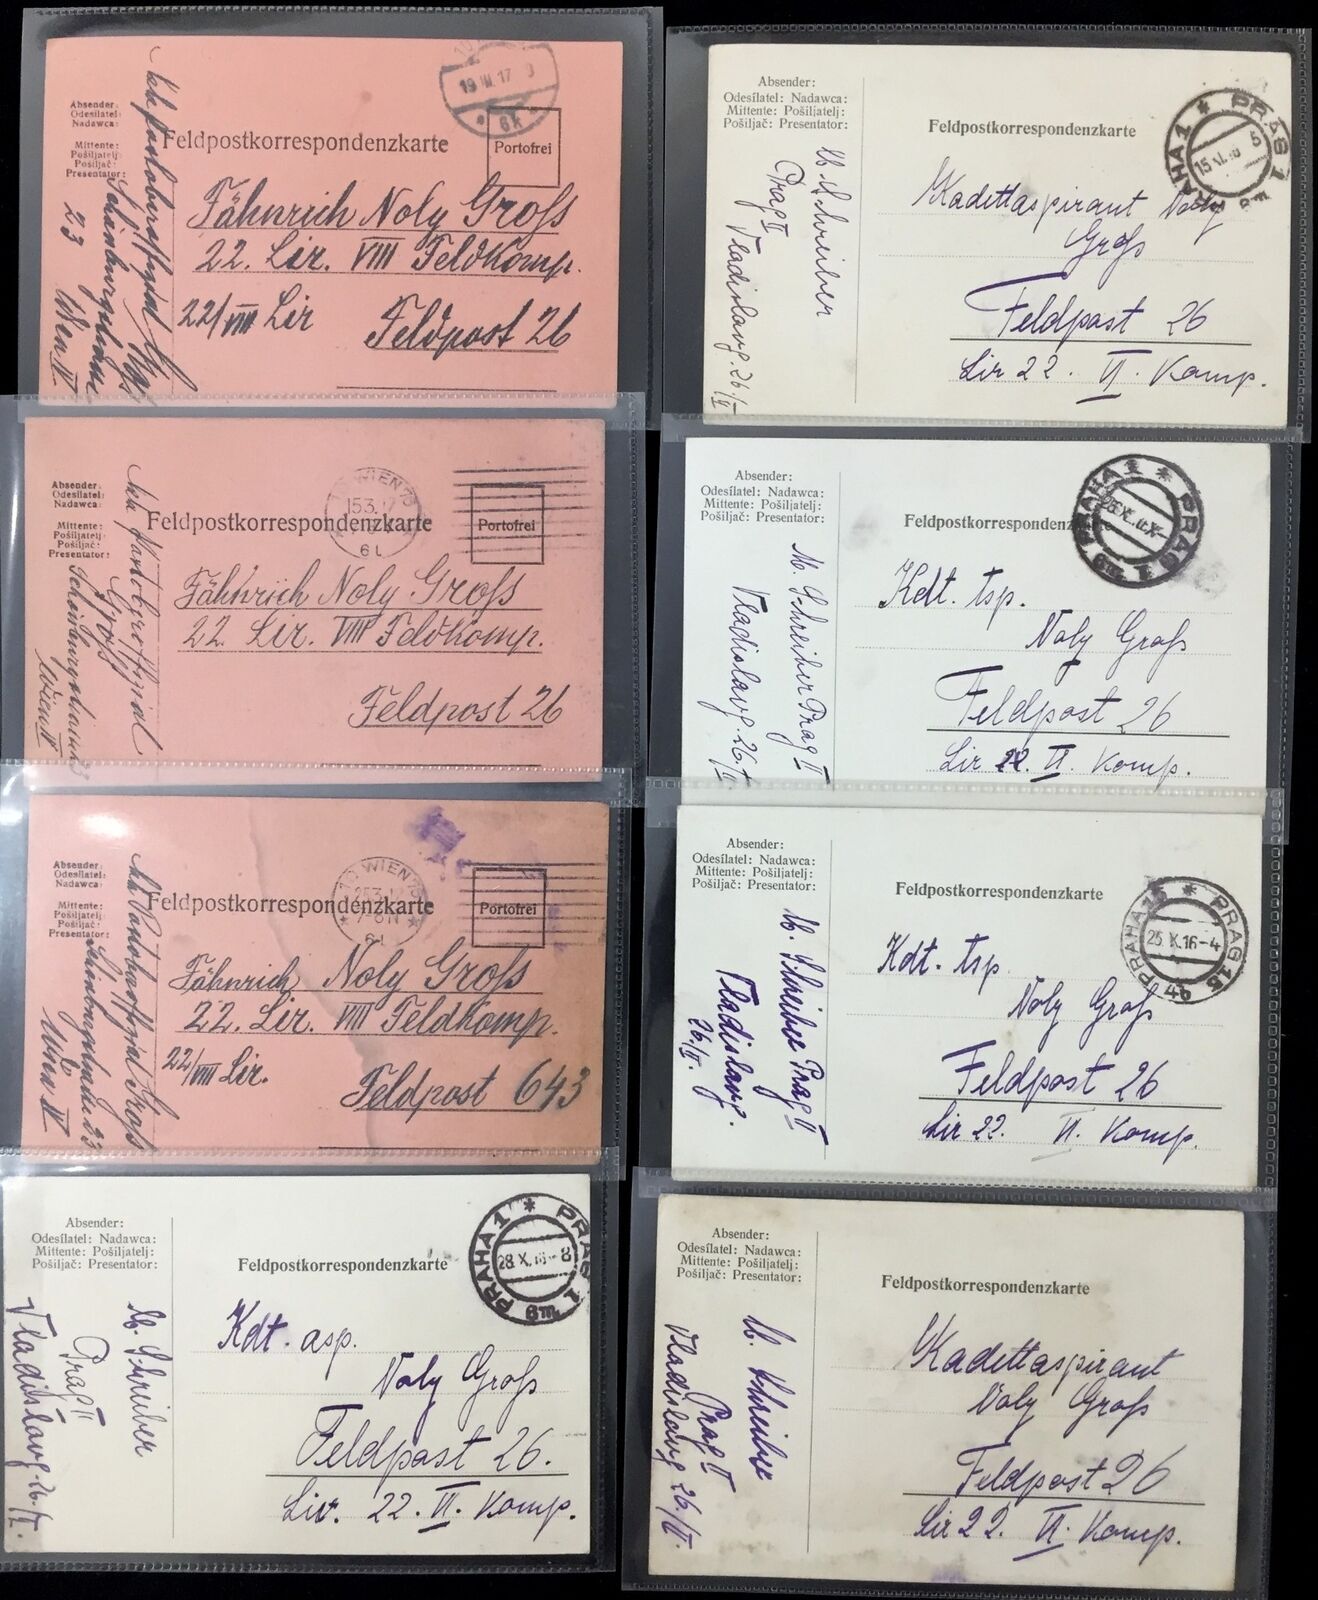 Absender:
Odesílatel:
Nadawca:
Mittente:
Pošiljatelj:
Pošiljač:
Presentator:
Feldpostkorrespondenzkarte
Portofrei
19 III 17
6k
Fähnrich Noly Groß
22. Lir. VIII Feldkomp.
22/VIII Lir
Feldpost 26
23
Wien IV
Absender:
Odesílatel:
Nadawca:
Mittente:
Pošiljatelj:
Pošiljač:
Presentator:
Feldpostkorrespondenzkarte
Portofrei
WIEN 75
6L
Fähnrich Noly Groß
22 Lir. VIII Feldkomp.
Feldpost 26
Groß
Wien IV
Absender:
Odesílatel:
Nadawca:
Mittente:
Pošiljatelj:
Pošiljač:
Presentator:
Feldpostkorrespondenzkarte
Portofrei
WIEN 75
6L
Fähnrich Noly Groß
22. Lir. VIII Feldkomp.
22/VIII Lir.
Feldpost 643
Groß
23
Wien IV
Absender:
Odesílatel: Nadawca:
Mittente: Pošiljatelj:
Pošiljač: Presentator:
Feldpostkorrespondenzkarte
PRAHA 1 * PRAG 1
28.X.16-8
6m
M. Schreiber
Prag II
Vladislavg. 26/II.
Kdt. asp.
Noly Groß
Feldpost 26.
Lir. 22. VI. Komp.
Absender:
Odesílatel: Nadawca:
Mittente: Pošiljatelj:
Pošiljač: Presentator:
Feldpostkorrespondenzkarte
PRAHA 1 * PRAG 1
15.XI.16 5
M. Schreiber
Prag II
Vladislavg. 26/II
Kadettaspirant Noly
Groß
Feldpost 26
Lir 22. VI. Komp.
Absender:
Odesílatel: Nadawca:
Mittente: Pošiljatelj:
Pošiljač: Presentator:
Feldpostkorrespondenzkarte
PRAHA 1 * PRAG 1
M. Schreiber Prag II
Vladislavg. 26/II
Kdt. asp.
Noly Groß
Feldpost 26
Lir 22. VI. Komp.
Absender:
Odesílatel: Nadawca:
Mittente: Pošiljatelj:
Pošiljač: Presentator:
Feldpostkorrespondenzkarte
PRAHA 15 * PRAG 15
25.X.16-4
4b
M. Schreiber Prag II
Vladislavg.
26/II.
Kdt. asp
Noly Groß
Feldpost 26
Lir 22. VI. Komp.
Absender:
Odesílatel: Nadawca:
Mittente: Pošiljatelj:
Pošiljač: Presentator:
Feldpostkorrespondenzkarte
M. Schreiber
Prag II
Vladislavg 26/II.
Kadettaspirant
Noly Groß
Feldpost 26
Lir 22. VI. Komp.